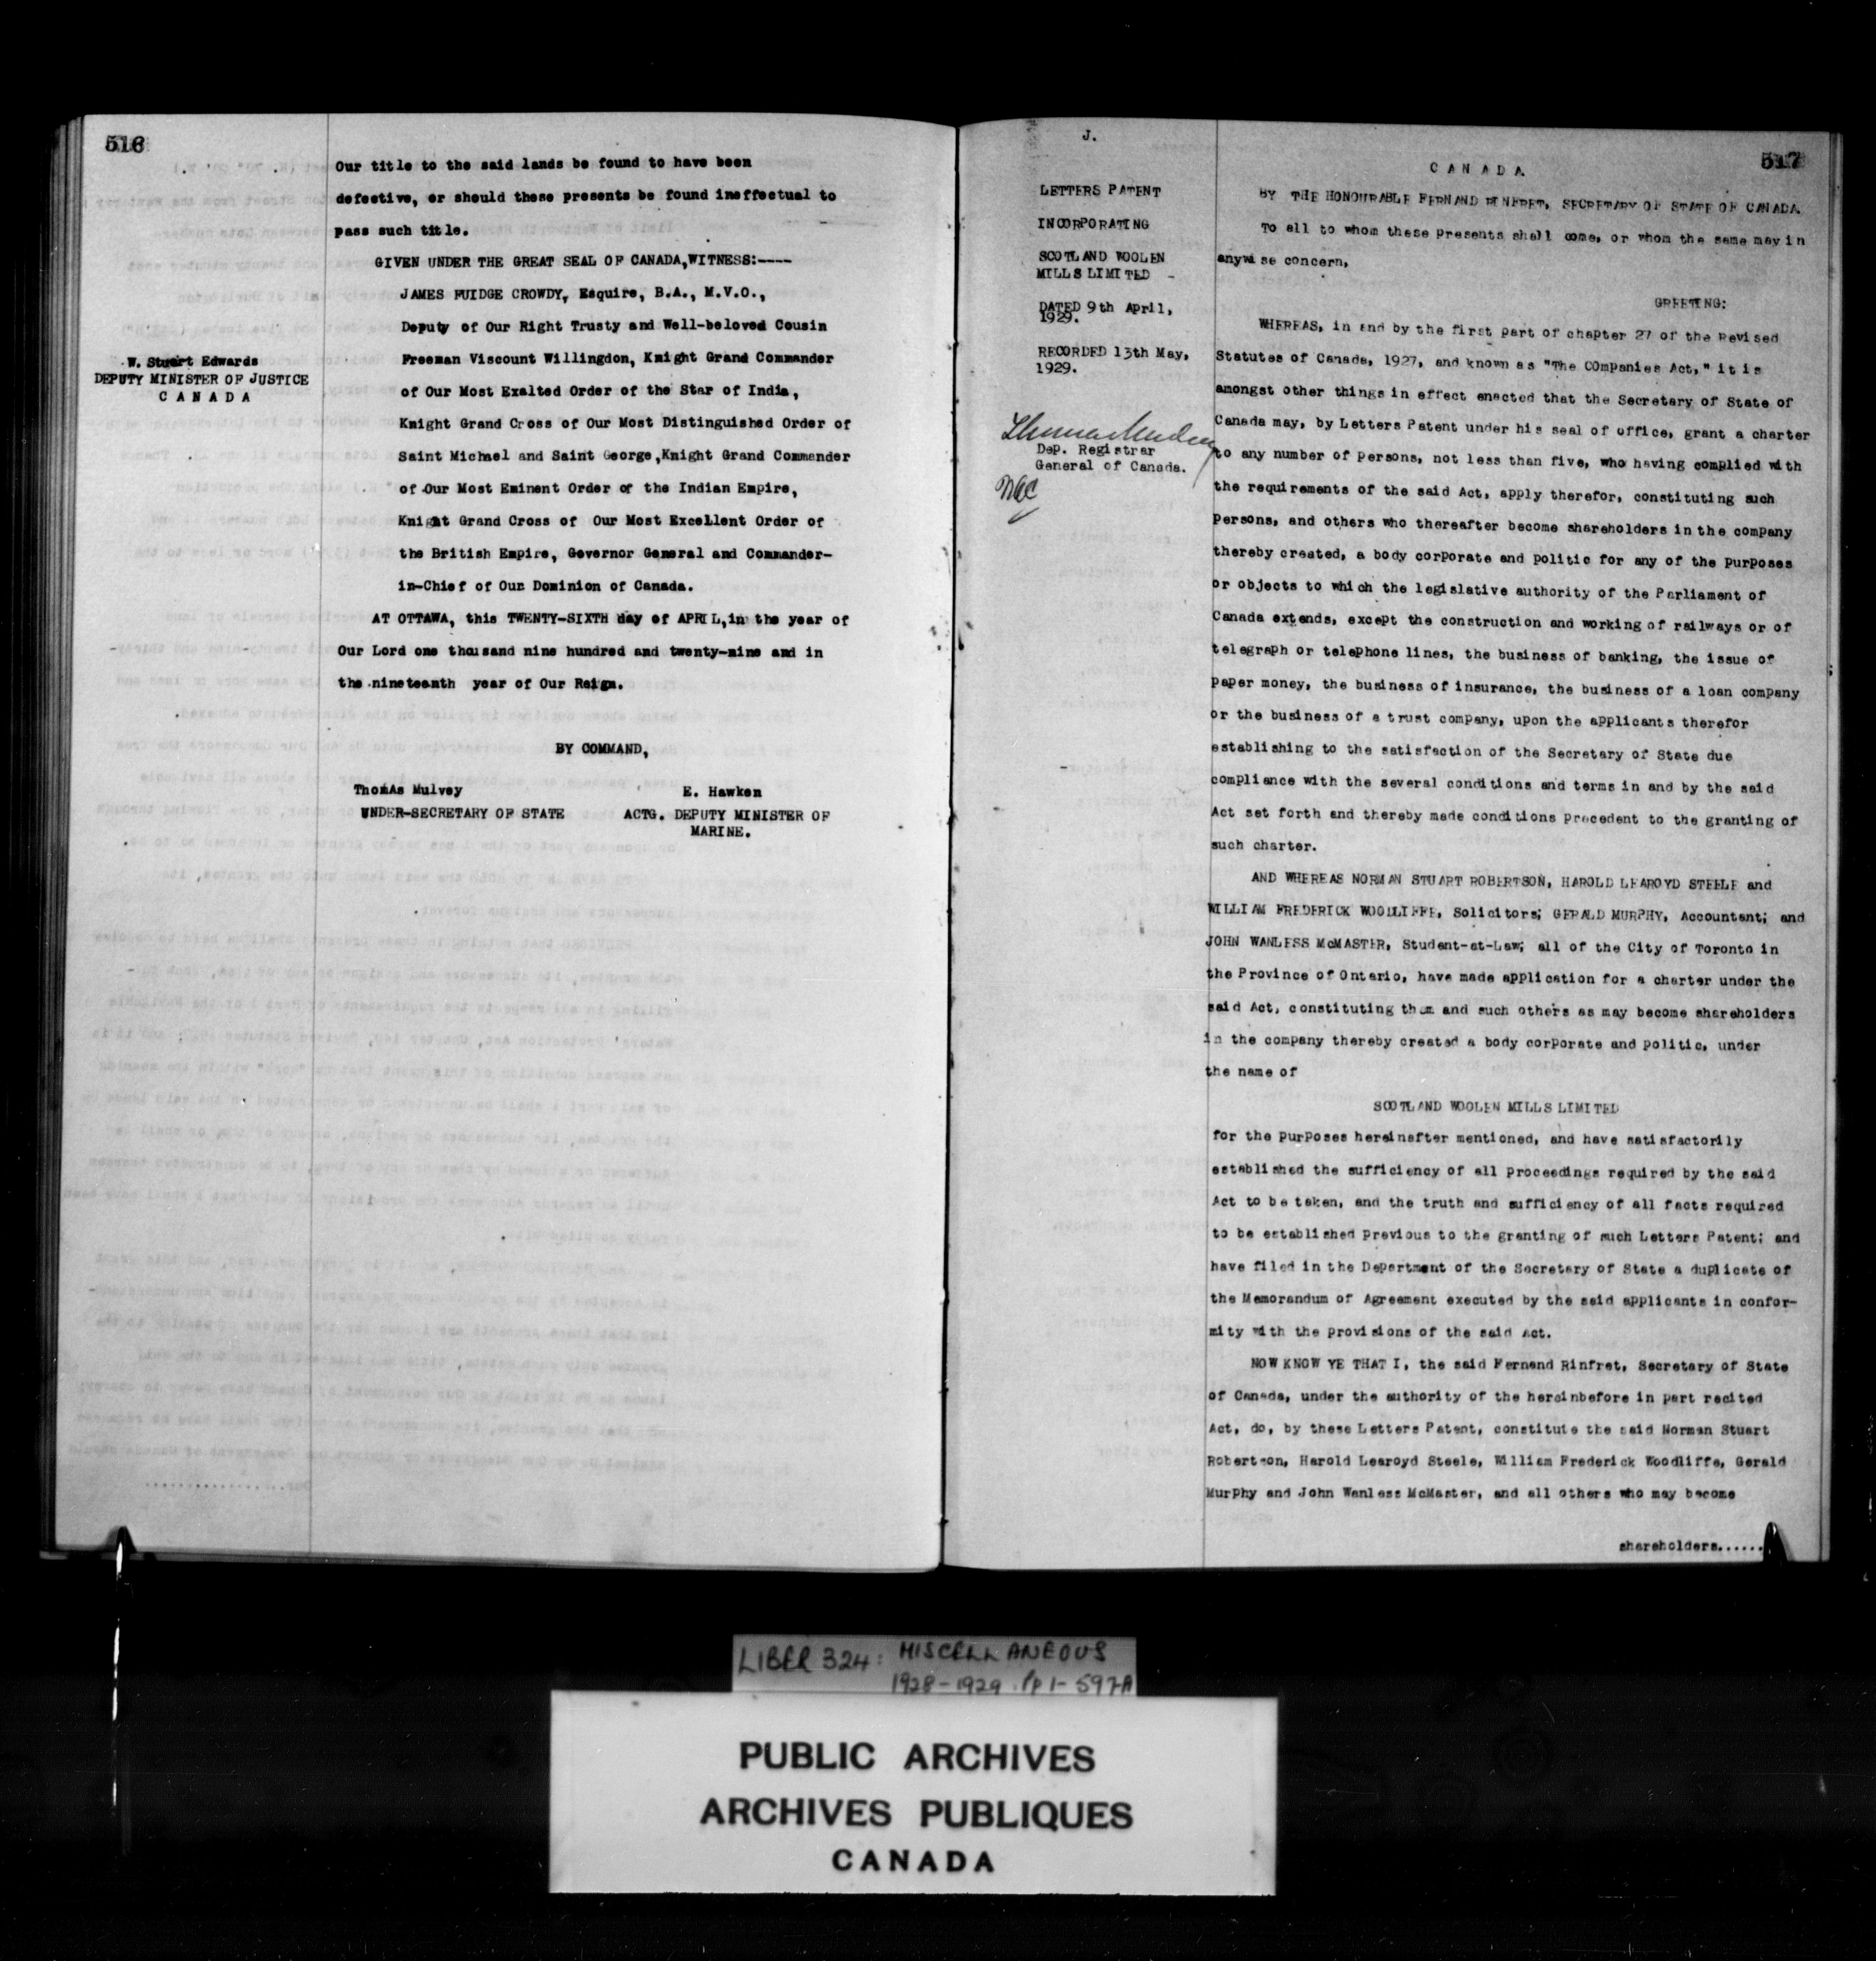 516
Our title to the said lands be found to have been
defective, or should these presents be found ineffectual to
pass such title.
GIVEN UNDER THE GREAT SEAL OF CANADA,WITNESS:----
JAMES FUIDGE CROWDY, Esquire, B.A., M.V.O.,
Deputy of Our Right Trusty and Well-beloved Cousin
Freeman Viscount Willingdon, Knight Grand Commander
of Our Most Exalted Order of the Star of India,
Knight Grand Cross of Our Most Distinguished Order of
Saint Michael and Saint George,Knight Grand Commander
of Our Most Eminent Order of the Indian Empire,
Knight Grand Cross of Our Most Excellent Order of
the British Empire, Governor General and Commander-
in-Chief of Our Dominion of Canada.
AT OTTAWA, this TWENTY-SIXTH day of APRIL,in the year of
Our Lord one thousand nine hundred and twenty-nine and in
the nineteenth year of Our Reign.
BY COMMAND,
Thomas Mulvey
UNDER-SECRETARY OF STATE
E. Hawken
ACTG. DEPUTY MINISTER OF
MARINE.
W. Stuart Edwards
DEPUTY MINISTER OF JUSTICE
C A N A D A
J.
517
LETTERS PATENT
INCORPORATING
SCOTLAND WOOLEN
MILLS LIMITED -
DATED 9th April,
1929.
RECORDED 13th May,
1929.
Dep. Registrar
General of Canada.
C A N A D A
BY THE HONOURABLE FERNAND RINFRET, SECRETARY OF STATE OF CANADA
To all to whom these presents shall come, or whom the same may in
anywise concern,
GREETING:
WHEREAS, in and by the first part of chapter 27 of the Revised
Statutes of Canada, 1927, and known as "The COmpanies Act," it is
amongst other things in effect enacted that the Secretary of State of
Canada may, by Letters Patent under his seal of office, grant a charter
to any number of persons, not less than five, who having complied with
the requirements of the said Act, apply therefor, constituting such
persons, and others who thereafter become shareholders in the company
thereby created, a body corporate and politic for any of the purposes
or objects to which the legislative authority of the Parliament of
Canada extends, except the construction and working of railways or of
telegraph or telephone lines, the business of banking, the issue of
paper money, the business of insurance, the business of a loan company
or the business of a trust company, upon the applicants therefor
establishing to the satisfaction of the Secretary of State due
compliance with the several conditions and terms in and by the said
Act set forth and thereby made conditions precedent to the granting of
such charter.
AND WHEREAS NORMAN STUART ROBERTSON, HAROLD LEAROYD STEELE and
WILLIAM FREDERICK WOODLIFFE, Solicitors; GERALD MURPHY, Accountant; and
JOHN WANLESS McMASTER, Student-at-Law; all of the City of Toronto in
the Province of Ontario, have made application for a charter under the
said Act, constituting them and such others as may become shareholders
in the company thereby created a body corporate and politic, under
the name of
SCOTLAND WOOLEN MILLS LIMITED
for the purposes hereinafter mentioned, and have satisfactorily
established the sufficiency of all proceedings required by the said
Act to be taken, and the truth and sufficiency of all facts required
to be established previous to the granting of such Letters Patent; and
have filed in the Department of the Secretary of State a duplicate of
the Memorandum of Agreement executed by the said applicants in confor-
mity with the provisions of the said Act.
NOW KNOW YE THAT I, the said Fernand Rinfret, Secretary of State
of Canada, under the authority of the hereinbefore in part recited
Act, do, by these Letters Patent, constitute the said Norman Stuart
Robertson, Harold Learoyd Steele, William Frederick Woodliffe, Gerald
Murphy and John Wanless McMaster, and all others who may become
shareholders......
LIBER 324: MISCELLANEOUS
1928-1929. Pp 1-597A
PUBLIC ARCHIVES
ARCHIVES PUBLIQUES
CANADA